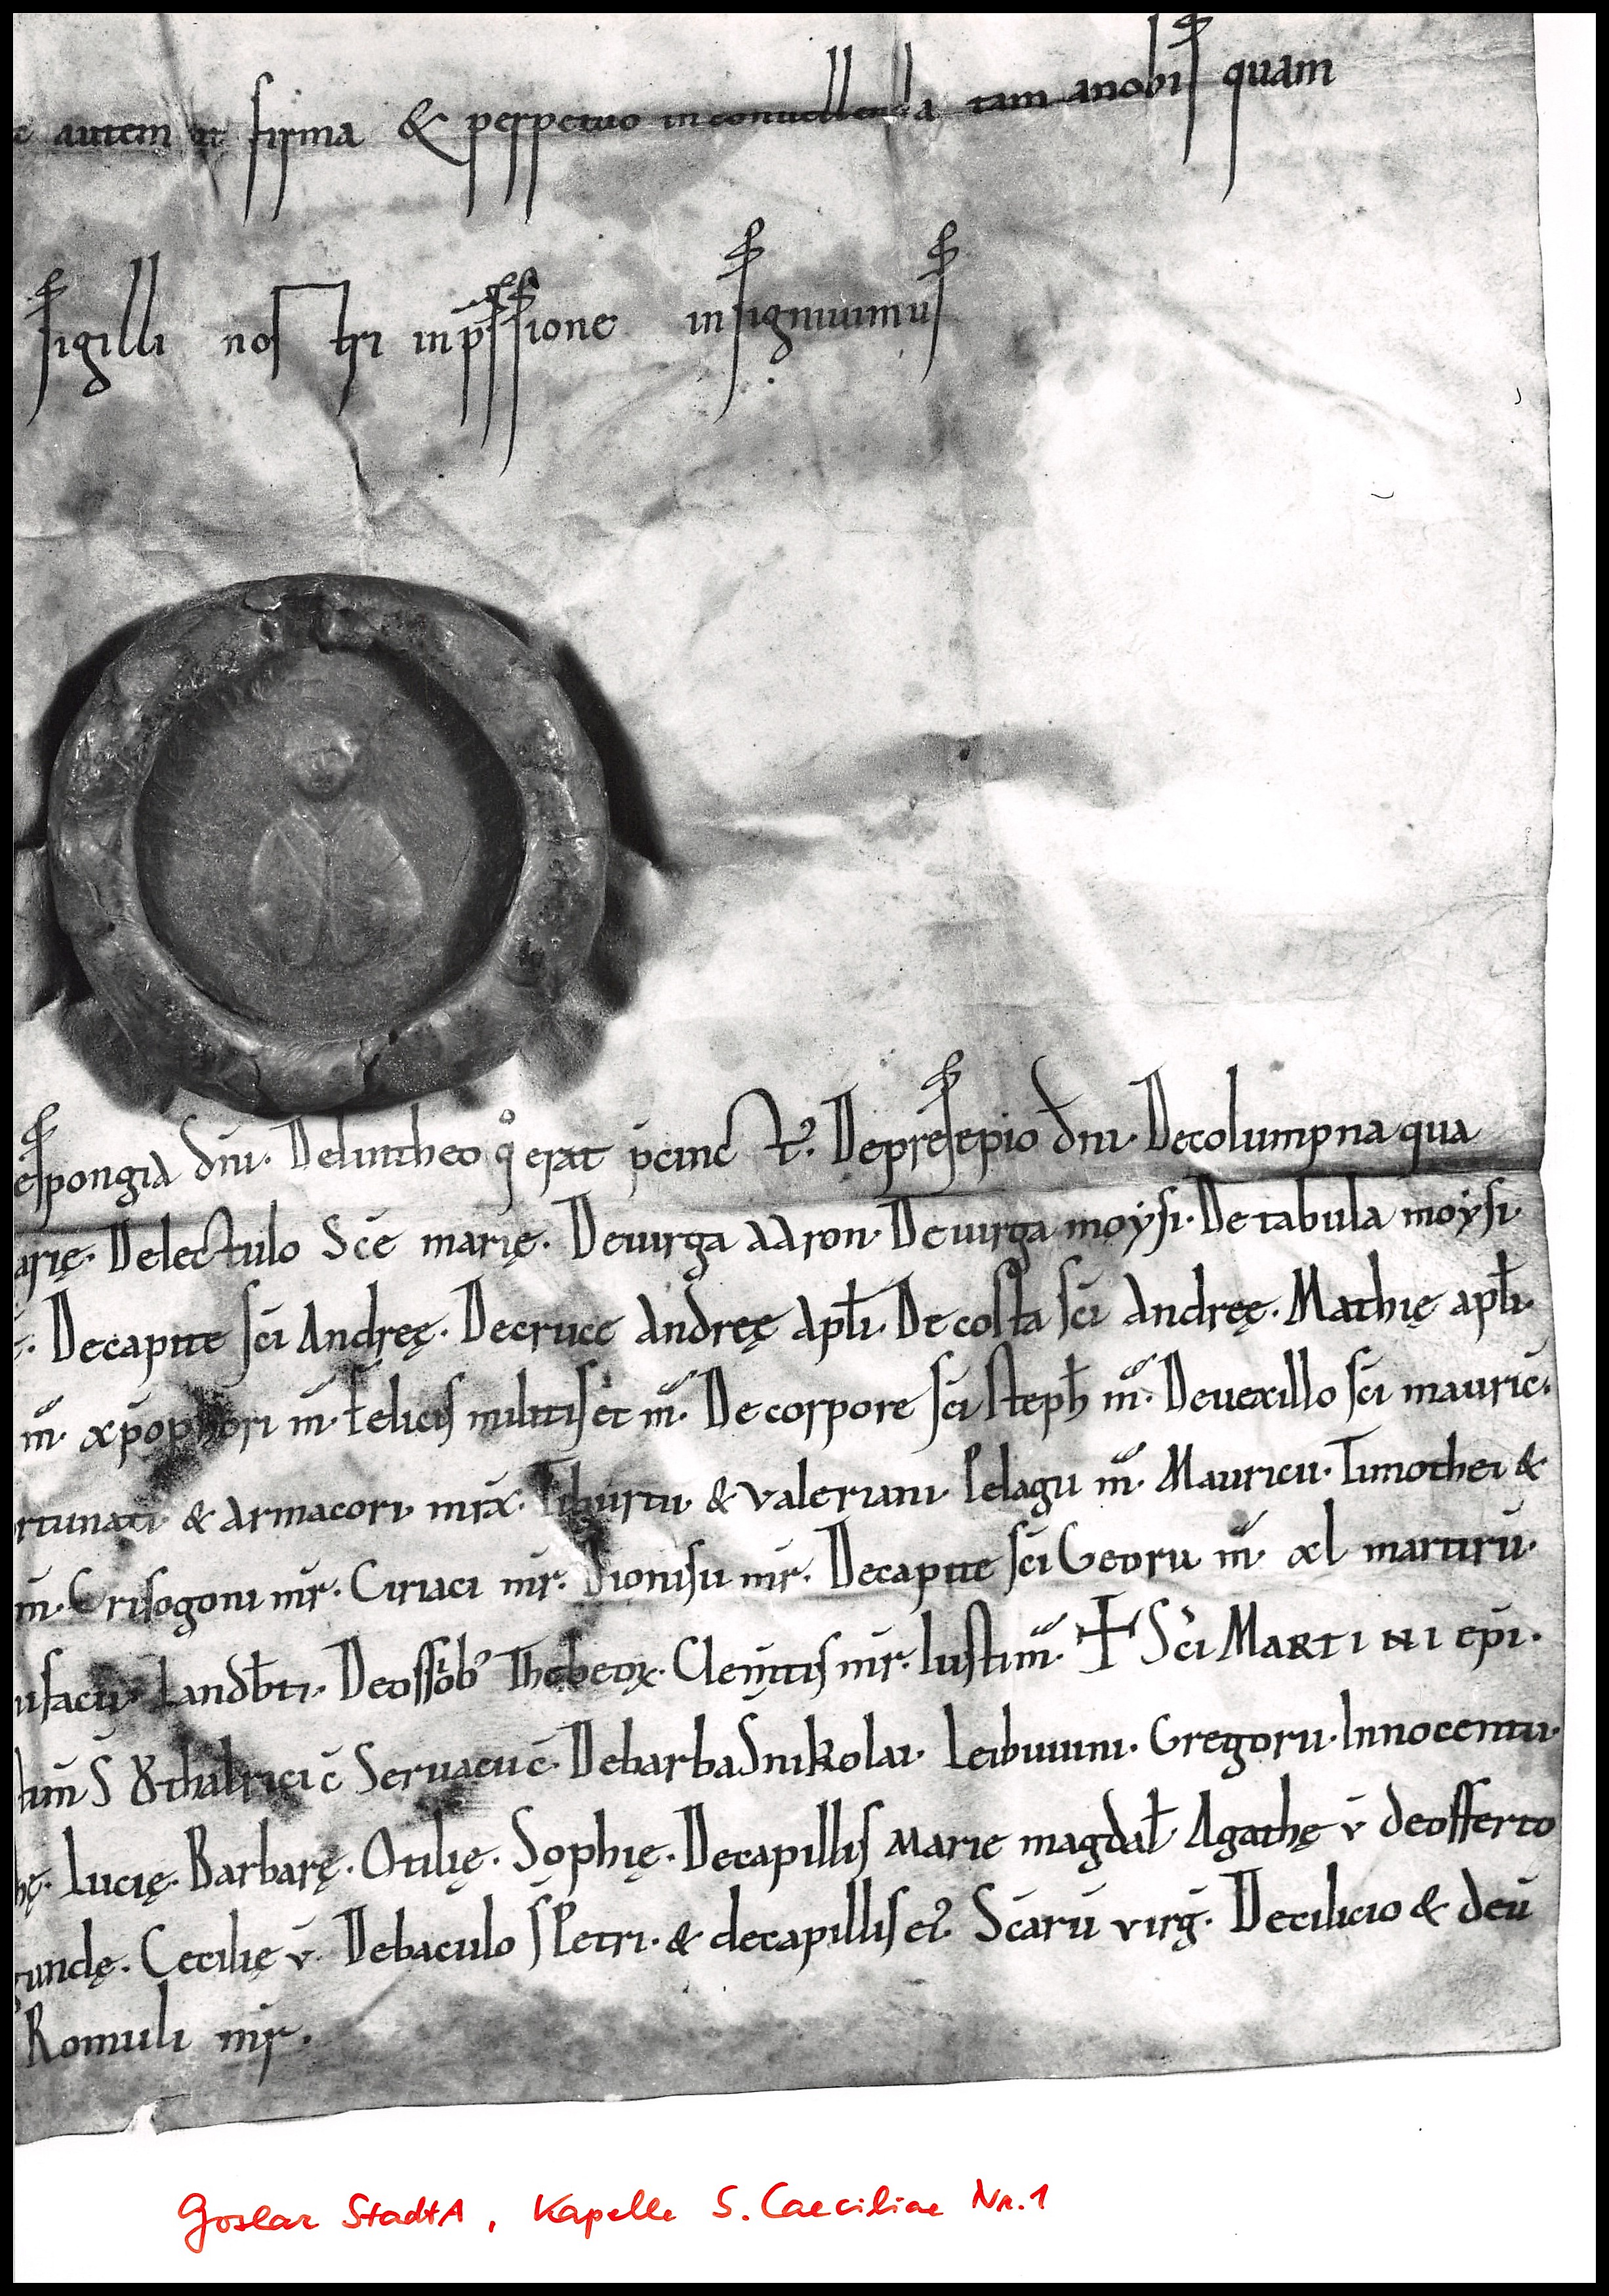 autem ut firma & perpetuo inconuellenda tam anobis quam
sigilli nostri inp̄ssione insigniuimus
espongia dn̄i. Delintheo qͦ erat p̄cinct'. Depresepio dn̄i. Decolumpna qua
arię. Delectulo Scē marię. Deuirga aaron. Deuirga moẏsi. De tabula moẏsi.
Decapite sc̄i Andreę. Decruce Andreę apl̄i. De costa sc̄i Andreę. Mathię apl̄i.
m̄. xp̄ophori m̄. felicis militis et m̄. De corpore sc̄i steph̄ m̄. Deuexillo sc̄i mauric̄.
rtunati & armacori. mrꝝ. Tiburtii. & valeriani. Pelagii m̄. Mauricii. Timothei &
m̄. Crisogoni mr̄. Ciriaci mr̄. Dionisii mr̄. Decapite sc̄i Georii m̄. xl martirū.
Landb̄ti. Deossib' Thebeoꝝ. Clem̄tis mr̄. Iusti m̄. ☩ Sc̄i MARTINI ep̄i.
S Ꝋthalrici c̄ Seruacii c̄. Debarba S nikolai. Leibuuini. Gregorii. Innocentii.
hę. Lucię. Barbarę. Otilię. Sophię. Decapillis Marie magdal̄ Agathę v̄ deofferto
undę. Cecilię v̄. Debaculo S Petri. & decapillis ei'. Scārū virḡ. Decilicio & deū
Romuli mr̄.
Goslar StadtA, Kapelle S. Caeciliae Nr. 1